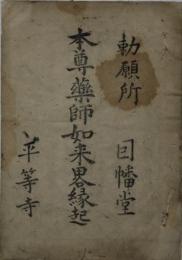 勅願所 因幡堂
本尊薬師如来畧縁起
平等寺